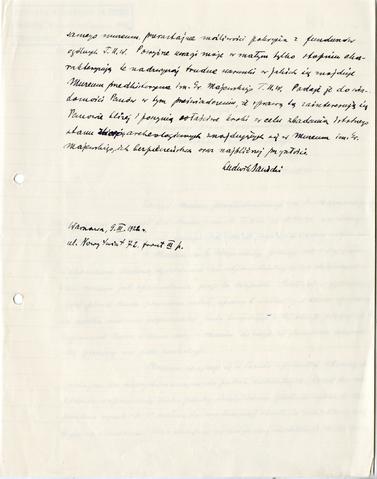 samego muzeum przerastające możliwości pokrycia z funduszów
ogólnych T.N.W. Powyższe uwagi moje w małym tylko stopniu cha-
rakteryzują te nadzwyczaj trudne warunki w jakich się znajduje
Muzeum przedhistoryczne im. Er. Majewskiego T.N.W. Podaję je do wia-
domości Panów w tym przeświadczeniu, że sprawą tą zainteresują się
Panowie bliżej i poczynią właściwe kroki w celu zbadania istotnego
stanu archeologicznych znajdujących się w Muzeum im. Er.
Majewskiego, ich bezpieczeństwa oraz najbliższej przyszłości.
Ludwik Sawicki
Warszawa, 9.III.192
ul. Nowy Świat 72. front III p.